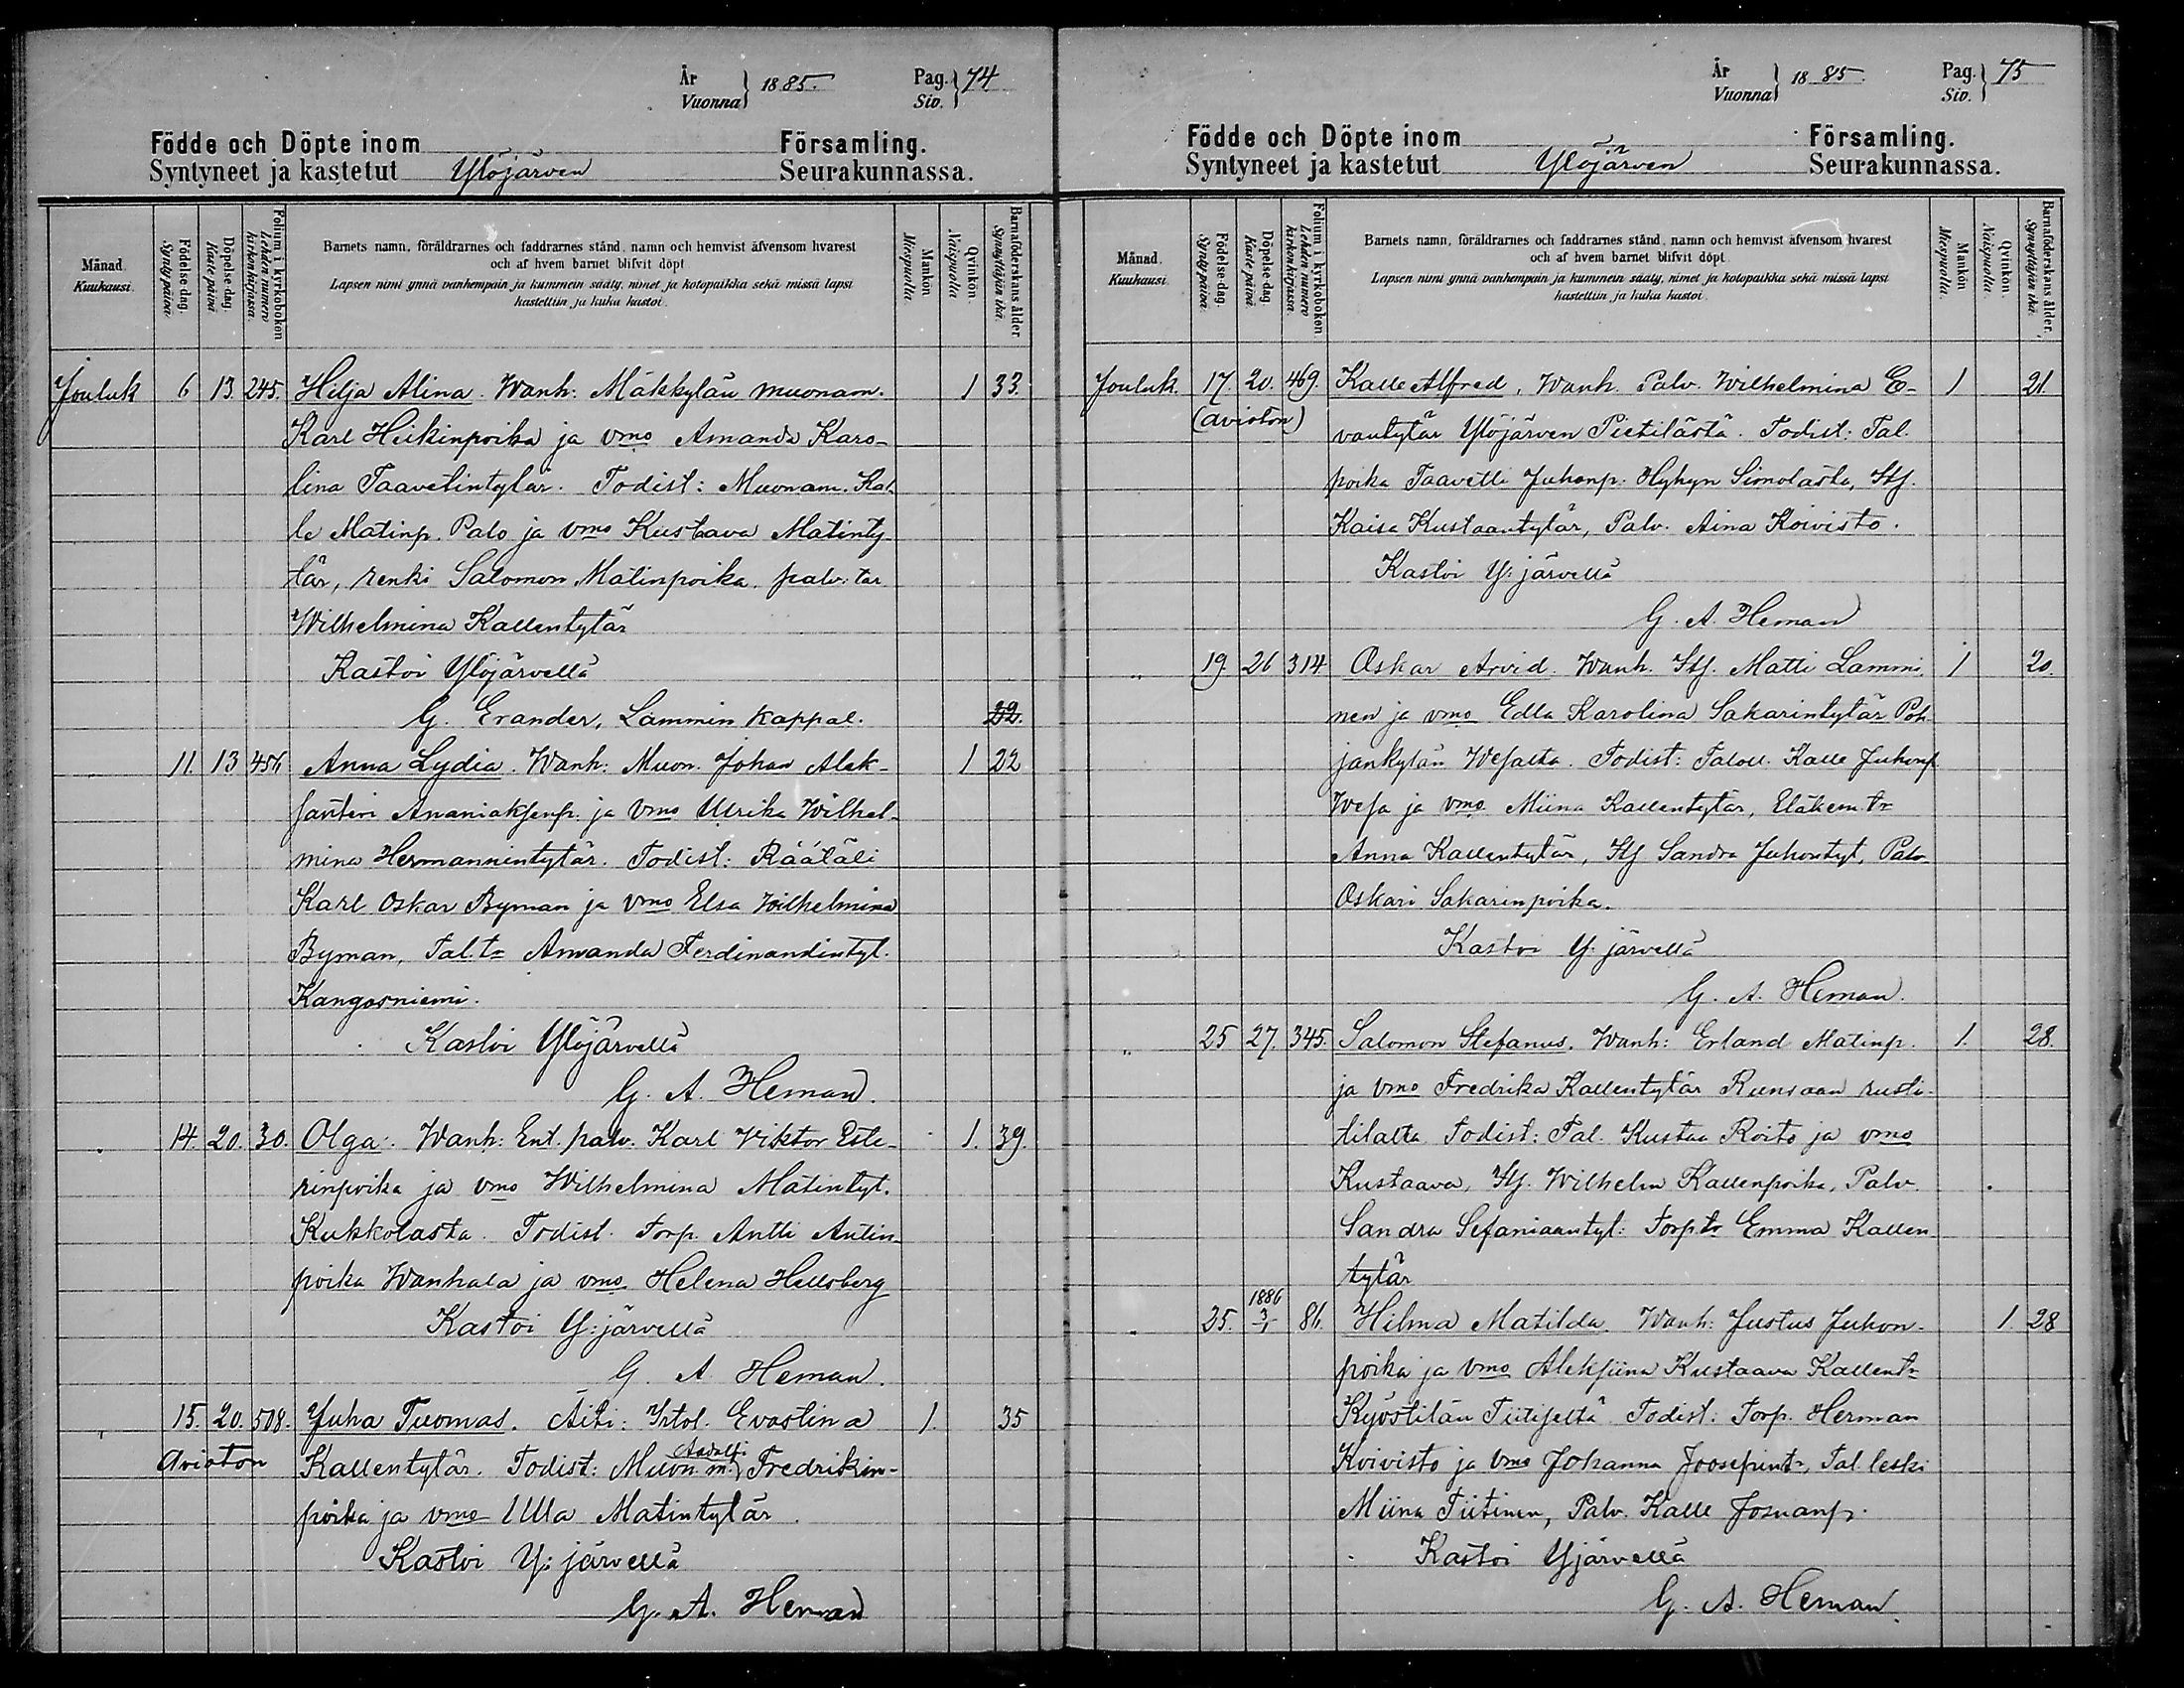 År
Vuonna } 1885.
Pag.
Siv. } 74
Födde och Döpte inom Församling.
Syntyneet ja kastetut Ylöjärven Seurakunnassa.
Månad.
Kuukausi.
Födelse-dag.
Synty-päivä.
Döpelse-dag.
Kaste-päivä.
Folium i kyrkobokon
Lehden numero
kirkonkirjassa.
Barnets namn, föräldrarnes och faddrarnes stånd, namn och hemvist äfvensom hvarest
och af hvem barnet blifvit döpt.
Lapsen nimi ynnä vanhempain ja kummein sääty, nimet ja kotopaikka sekä missä lapsi
kastettiin ja kuka kastoi.
Mankön
Miespuolia
Qvinkön.
Naispuolia
Barnaföderskans ålder
Synnyttäjän ikä.
Jouluk 6 13. 245. Hilja Alina. Wanh: Mäkkylän muonam. 1 33.
Karl Heikinpoika ja vmo Amanda Karo-
lina Taavetintytär. Todist: Muonam. Kal-
le Matinp. Palo ja vmo Kustava Matinty
tär, renki Salomon Matinpoika. palv: tar
Wilhelmina Kallentytär
Kastoi Ylöjärvellä
G. Erander, Lammin kappal. 22.
" 11. 13 456 Anna Lydia. Wanh: Muon. Johan Alek- 1 22
santeri Ananiaksenp. ja vmo Ulrika Wilhel-
mina Hermannintytär. Todist: Räätäli
Karl Oskar Byman ja vmo Elsa Wilhelmina
Byman, Tal.tr Amanda Ferdinandintyt.
Kangasniemi.
Kastoi Ylöjärvellä
G. A. Heman.
" 14. 20. 30. Olga. Wanh: Ent. palv. Karl Viktor Este- 1. 39.
rinpoika ja vmo Wilhelmina Matintyt.
Kukkolasta. Todist. Torp. Antti Antin-
poika Wanhala ja vmo Helena Hellsberg
Kastoi Y:järvellä
G. A. Heman.
" 15. 20. 508. Juha Tuomas. Äiti: Irtol. Evastina 1. 35
Avioton Kallentytär. Todist: Muon m: Aadolfi Fredrikin-
poika ja vmo Ulla Matintytär.
Kastoi Y: järvellä
G. A. Heman
År
Vuonna } 1885.
Pag.
Siv. } 75
Födde och Döpte inom Församling.
Syntyneet ja kastetut Ylöjärven Seurakunnassa.
Månad.
Kuukausi.
Födelse-dag.
Synty-päivä.
Döpelse-dag.
Kaste-päivä.
Folium i kyrkobokon.
Lehden numero
kirkonkirjassa.
Barnets namn, föräldrarnes och faddrarnes stånd, namn och hemvist äfvensom hvarest
och af hvem barnet blifvit döpt.
Lapsen nimi ynnä vanhempain ja kummein sääty, nimet ja kotopaikka sekä missä lapsi
kastettiin, ja kuka kastoi.
Mankön
Miespuolia.
Qvinkön.
Naispuolia.
Barnaföderskans ålder.
Synnyttäjän ikä.
Jouluk. 17. 20. 469. Kalle Alfred, Wanh. Palv. Wilhelmina E- 1 21.
(avioton) vantytär Ylöjärven Pietilästä. Todist: Tal.
poika Taavetti Juhanp. Hyhyn Simolasta, Itj.
Kaisa Kustaantytär, Palv. Aina Koivisto.
Kastoi Y: järvellä
G. A. Heman
" 19. 26 314. Oskar Arvid. Wanh. Itj. Matti Lammi- 1 20.
nen ja vmo Edla Karolina Sakarintytär Poh-
jankylän Wesalta. Todist: Taloll. Kalle Juhonp
Wesa ja vmo Miina Kallentytär, Eläkem.tr
Anna Kallentytär, Itj Sandra Juhontyt, Palv
Oskari Sakarinpoika.
Kastoi Y: järvellä
G. A. Heman.
" 25 27. 345. Salomon Stefanus. Wanh: Erland Matinp. 1. 28.
ja vmo Fredrika Kallentytär Runsaan rusti-
tilalta Todist: Tal. Kustaa Roito ja vmo
Kustaava, Itj. Wilhelm Kallenpoika, Palv.
Sandra Sefaniaantyt: Torp.tr Emma Kallen
tytär
" 25. 1886 3/1 86. Hilma Matilda. Wanh: Justus Juhon- 1. 28
poika ja vmo Aleksiina Kustaava Kallent.
Kyöstilän Tiitiseltä Todist: Torp. Herman
Koivisto ja vmo Johanna Joosepint, Tal. leski
Miina Tiitinen, Palv. Kalle Josuanp.
Kastoi Yjärvellä
G. A. Heman.